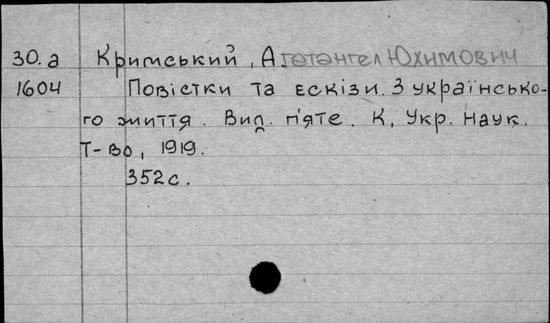 30.а Кримський, А.гатангел Юхимович
1604 Повістки та ескізи. З українсько-
го життя. Вид. п'яте. К, Укр. наук.
Т-во, 1919.
352с.